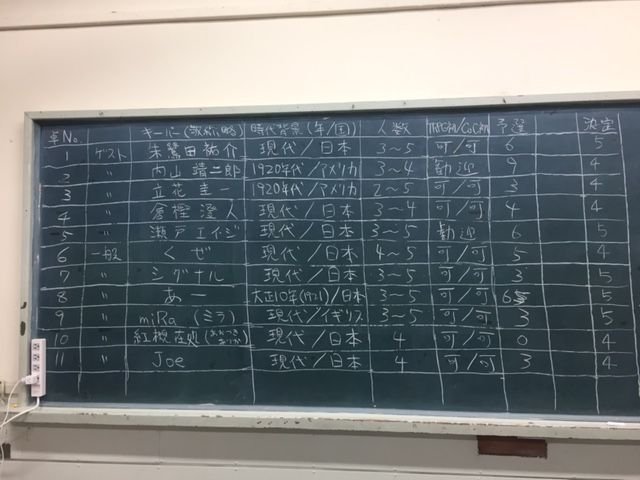 卓No. キーパー(敬称略) 時代背景(年/国) 人数 TRPG初/CoC初 予選 決定
1 ゲスト 朱鷺田祐介 現代/日本 3~5 可/可 6 5
2 〃 内山靖二郎 1920年代/アメリカ 3~4 歓迎 9 4
3 〃 立花圭一 1920年代/アメリカ 2~5 可/可 3 4
4 〃 倉樫澄人 現代/日本 3~4 可/可 4 4
5 〃 瀬戸エイジ 現代/日本 3~5 歓迎 6 5
6 一般 くぜ 現代/日本 4~5 可/可 5 4
7 〃 シグナル 現代/日本 3~5 可/可 3 5
8 〃 あー 大正10年(1921)/日本 3~5 可/可 6 5
9 〃 miRa(ミラ) 現代/イギリス 3~5 可/可 3 5
10 〃 紅槻在処 現代/日本 4 可/可 0 4
11 〃 Joe 現代/日本 4 可/可 3 4